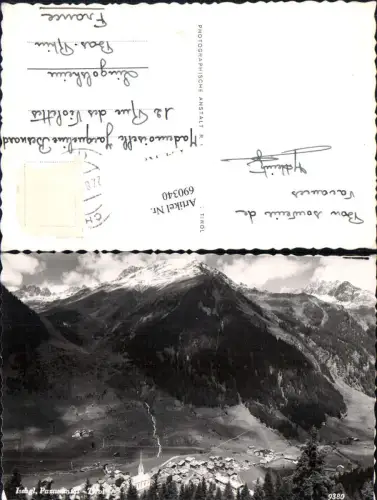 Bon souvenir de
Vacances
Mademoiselle Jacqueline Bernard
12 Rue des Violettes
Lingolsheim
Bas-Rhin
France
PHOTOGRAPHISCHE ANSTALT R.
TIROL
Artikel Nr.
690340
Ischgl, Paznauntal - Tirol
9380